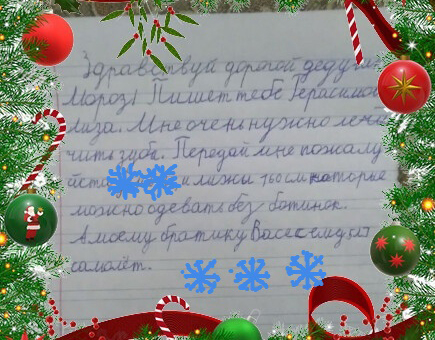 Здравствуй дорогой дедушка
Мороз! Пишет тебе Герасимова
Лиза. Мне очень нужно ле
чить зубы. Передай мне пожалу
йста и лыжы 160 см которые
можно одевать без ботинок.
А моему братику Васе
самолёт.